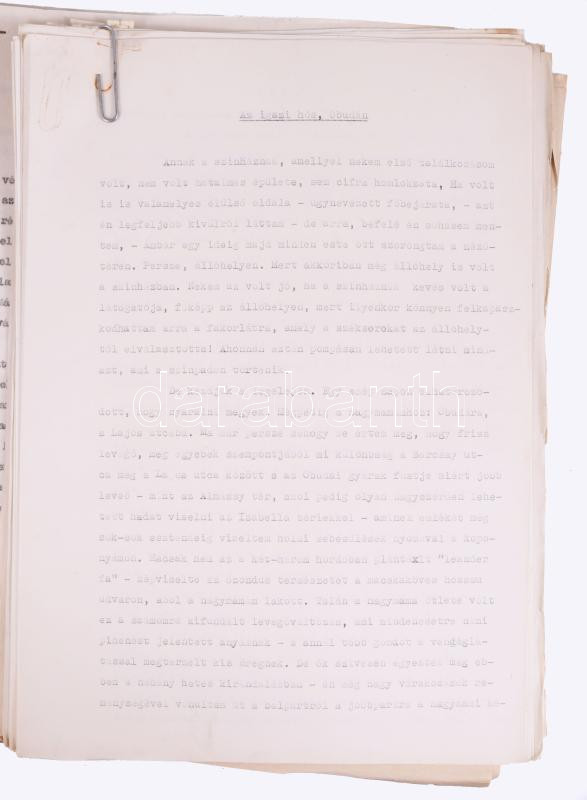 Az igazi hős, Óbudán
Annak a színháznak, amellyel nekem első találkozásom
volt, nem volt hatalmas épülete, sem cifra homlokzata. Ha volt
is is valamelyes elülső oldala - úgynevezett főbejárata, - azt
én legfeljebb kívülről láttam - de arra, befelé én sohasem men-
tem, - Ámbár egy ideig majd minden este ott szorongtam a néző-
téren. Persze, állóhelyen. Mert akkoriban még állóhely is volt
a színházban. Nekem az volt jó, ha a színháznak kevés volt a
látogatója, főképp az állóhelyen, mert ilyenkor könnyen felkapasz-
kodhattam arra a fakorlátra, amely a széksorokat az állóhely-
től elválasztotta! Ahonnan aztán pompásan lehetett látni mind-
azt, ami a színpadon történik.
De kezdjük a
dott, hogy nyaralni megyek. Méghozzá a nagymamához: Óbudára,
a Lajos utcába. Én már persze sehogy se értem meg, hogy friss
levegő, meg egyebek szempontjából mi különbség a Barcsay ut-
ca meg a Lajos utca között s az óbudai gyárak füstje miért jobb
levegő - mint az Almássy tér, ahol pedig olyan nagyszerűen lehe-
tett hadat viselni az Izabella tériekkel - aminek emlékét még
sok-sok esztendeig viseltem holmi sebesülések nyomával a kopo-
nyámon. Hacsak nem az a két-három hordóban plántált "leander
fa" - képviselte az ózondús természetet a macskaköves hosszú
udvaron, ahol a nagymamám lakott. Talán a nagymama ötlete volt
ez a számomra kifundált levegőváltozás, ami mindenesetre némi
pihenést jelentett anyáknak - s annál több gondot a vendéglá-
tással megterhelt kis öregnek. De ők szívesen egyeztek meg eb-
ben a néhány hetes kirándulásban - én meg nagy várakozások re-
ménységével vonultam át a balpartról a jobbpartra a nagymami ha-
vé
az
ré
el
el
la
vá
darabanth